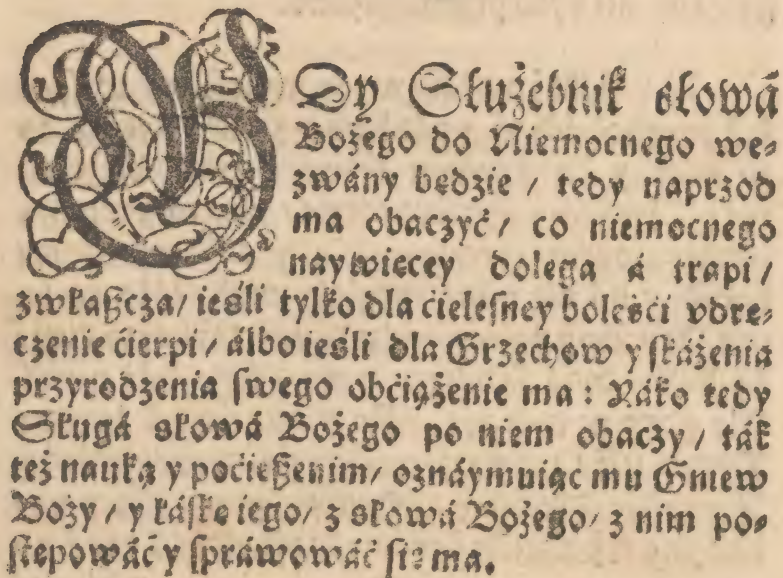 GDy Służebnik słowá
Bożego do Niemocnego we⸗
zwány będzie / tedy naprzod
ma obaczyć / co niemocnego
naywięcey dolega á trapi /
zwłaßcza / ieśli tylko dla ćieleſney boleśći vdrę⸗
czenie ćierpi / álbo ieśli dla Grzechow y ſkáżenia
przyrodzenia ſwego obćiążenie ma : Jáko tedy
Sługá słowá Bożego po niem obaczy / ták
też nauką y poćießenim / oznáymuiąc mu Gniew
Boży / y łáſkę iego / z słowá Bożego / z nim po⸗
ſtępowáć y ſpráwowáć ſię ma.